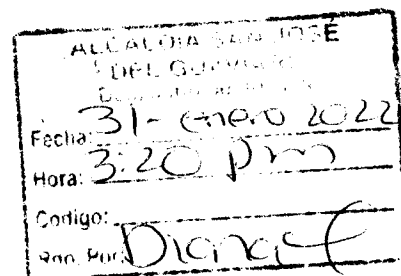 ALCALDIA SAN JOSÉ
DEL GUAVIARE
Fecha: 31-enero 2022
Hora: 3:20 pm
Codigo:
Por: Diana